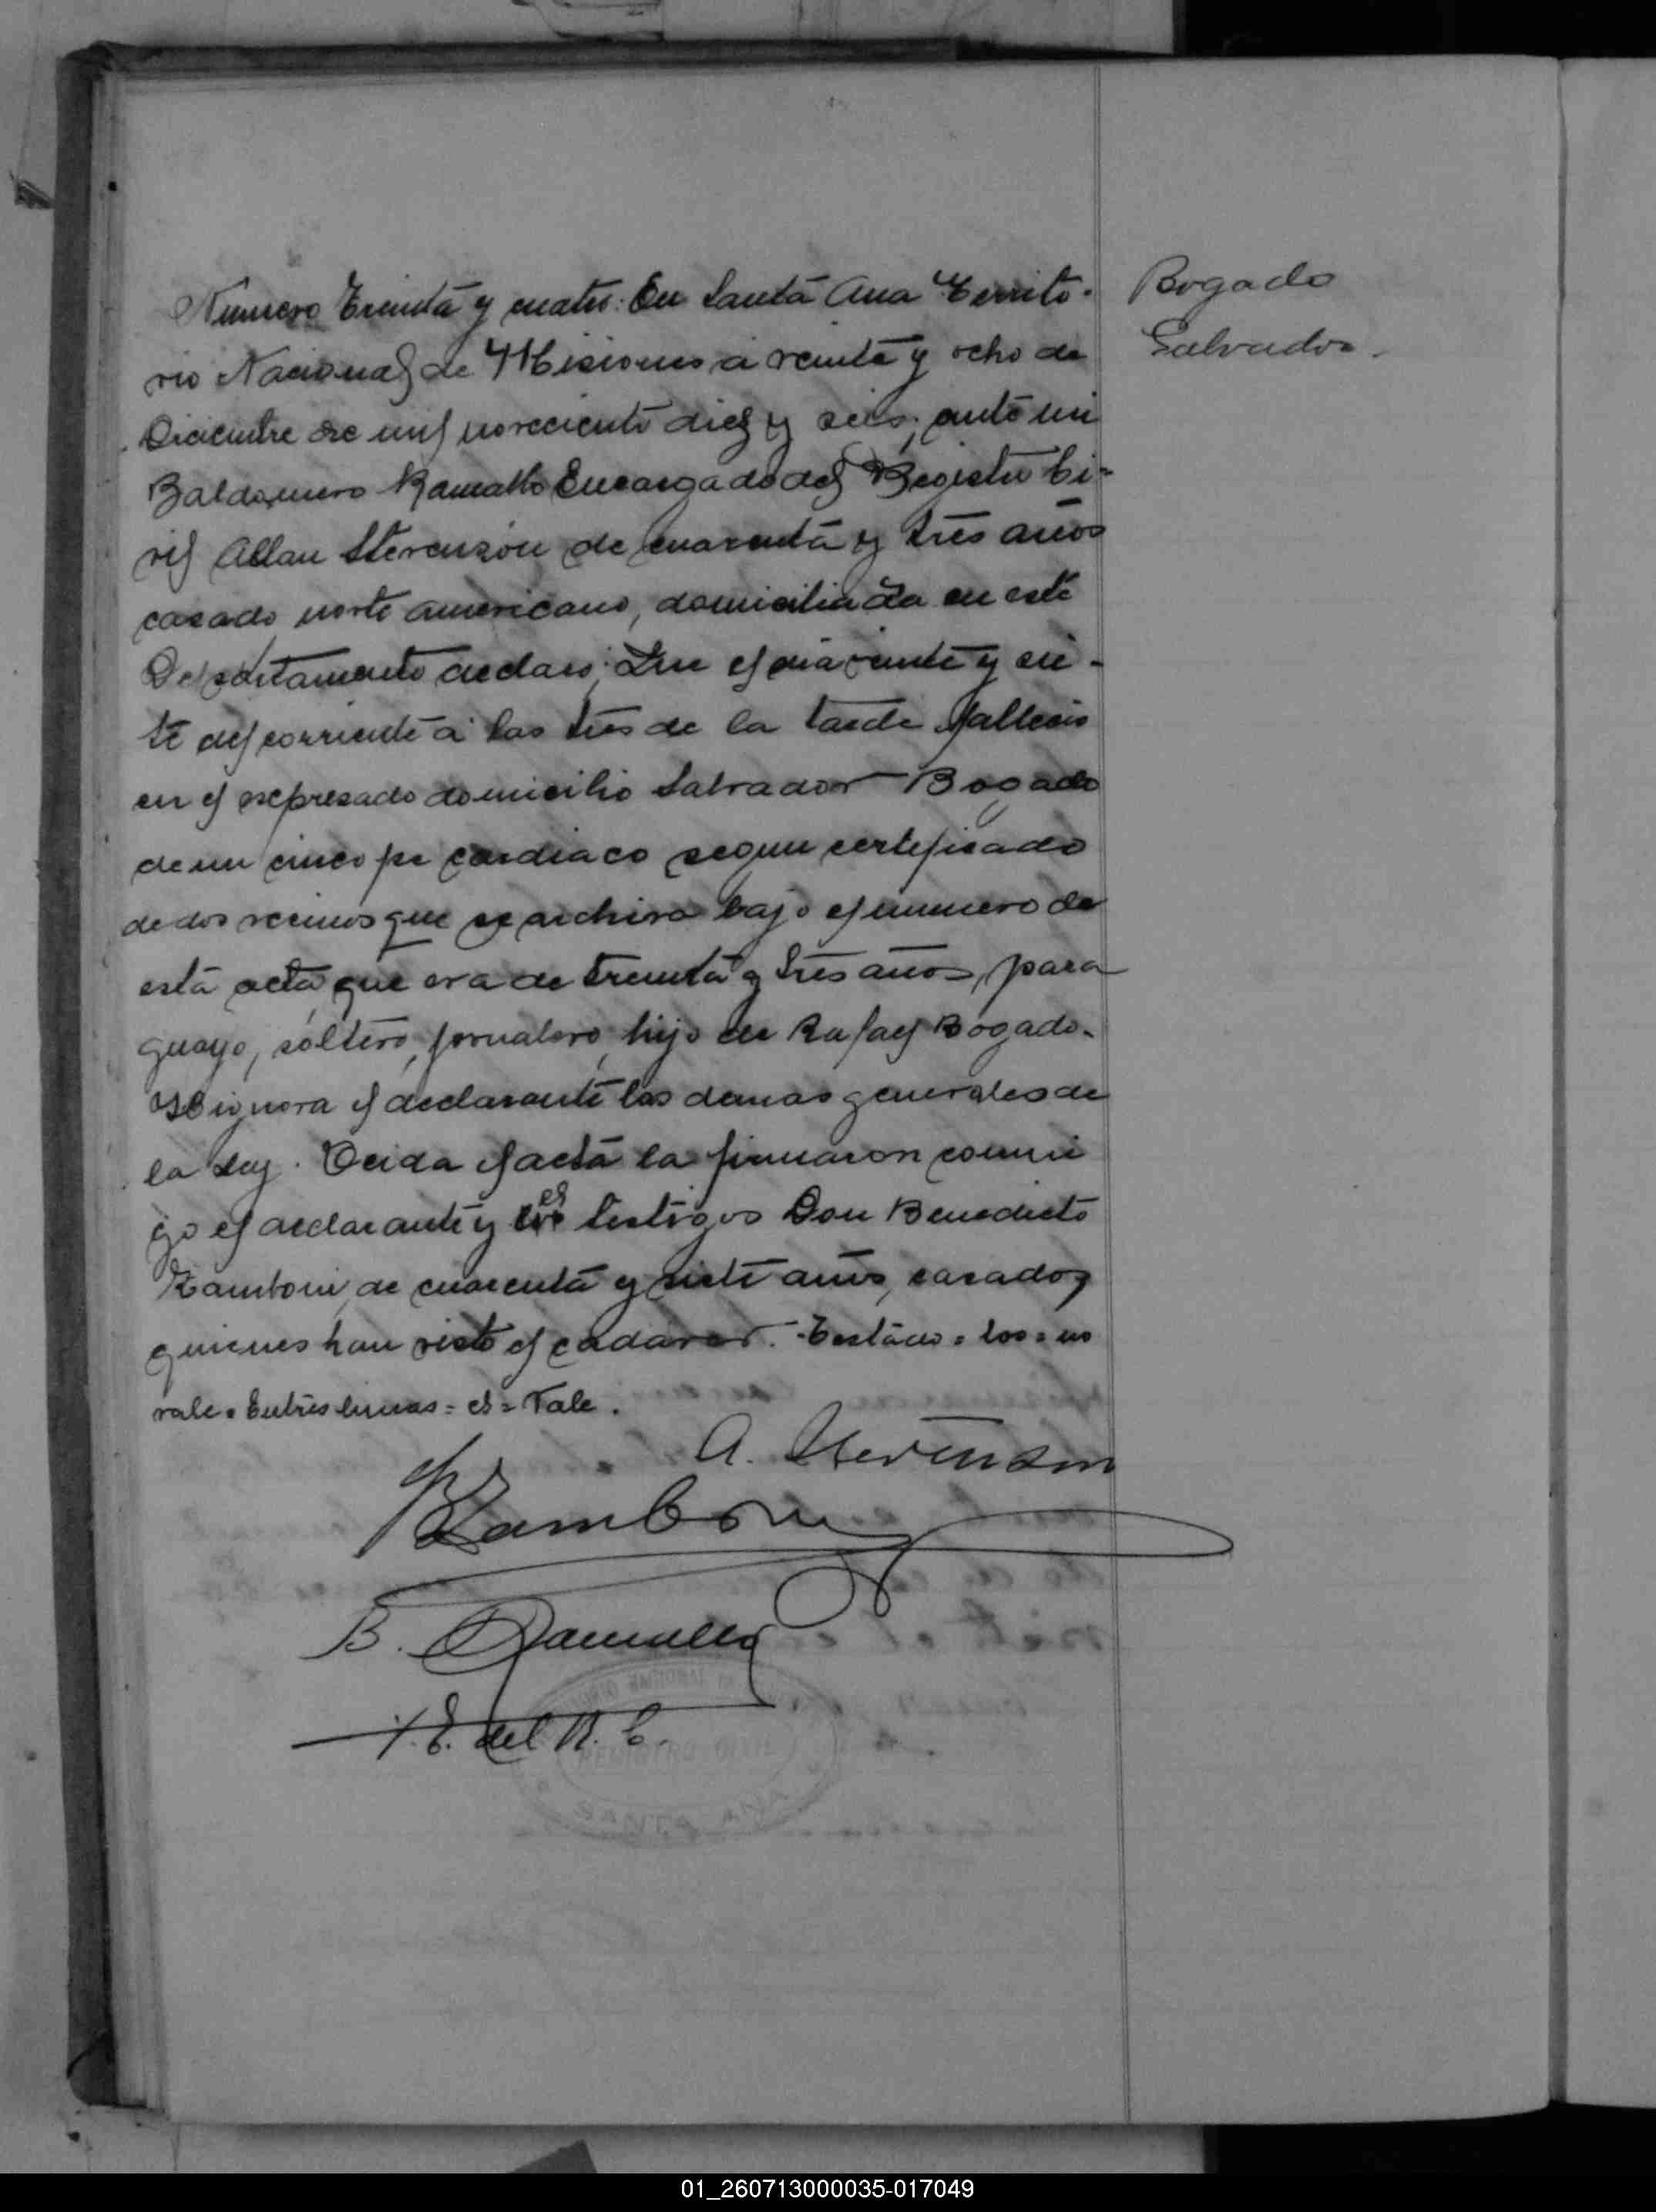 Numero Treinta y cuatro: En Santa Ana Territo-
rio Nacional de Misiones a veinte y ocho de
Diciembre de mil novecientos diez y seis, ante mi
Baldomero Ramallo Encargado del Registro Ci-
vil Allan Stevenzon de cuarenta y tres años
casado, norte americano, domiciliada en este
Departamento declaró: Que el dia veinte y sie-
te del corriente a las tres de la tarde fallecio
en el expresado domicilio Salvador Bogado
de un cincope cardiaco segun certificado
de dos vecinos que se archiva bajo el numero de
esta acta, que era de treinta y tres años, para
guayo, soltero, jornalero, hijo de Rafael Bogado.
Ignora el declarante las demas generales de
la Ley. Leida el acta la firmaron conmi
go el declarante y los el testigos Don Benedicto
Zamboni, de cuarenta y siete años, casado,
quienes han visto el cadaver. Testado = los = no
vale = Entres lineas = el = Vale.
A. Stevenson
B Zamboni
B. Ramallo
E. del R. C.
REGISTRO CIVIL
Bogado
Salvador.
01_260713000035-017049